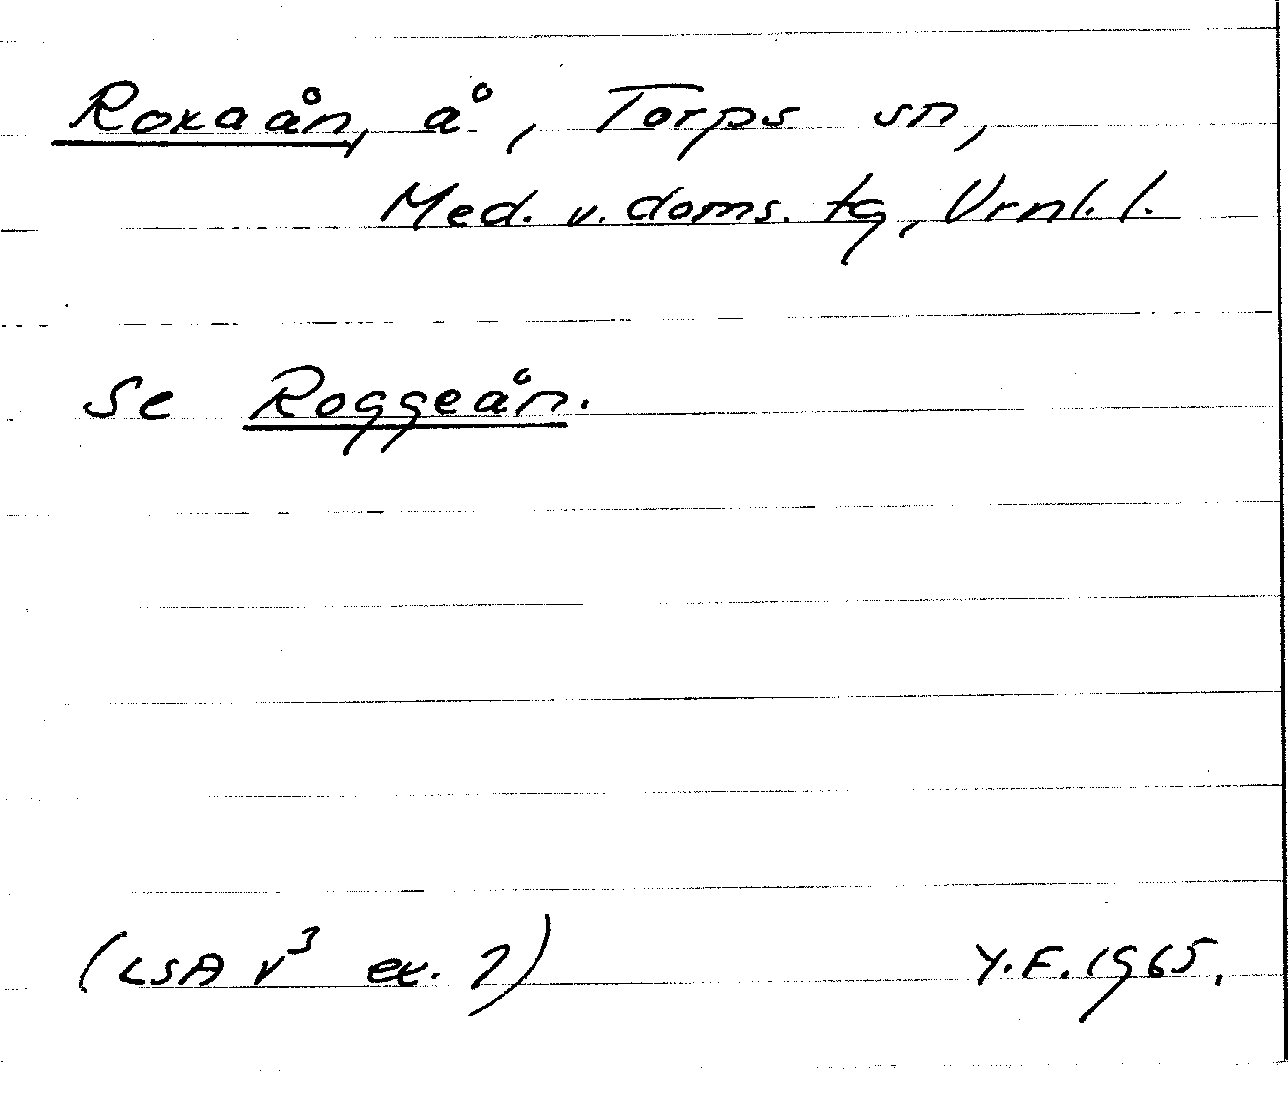 Roxaån, å, Torps sn,
Med. v. doms. tg, Vrnl. l.
Se Roggeån.
(LSA V³ ex. 2)
Y.F. 1965.